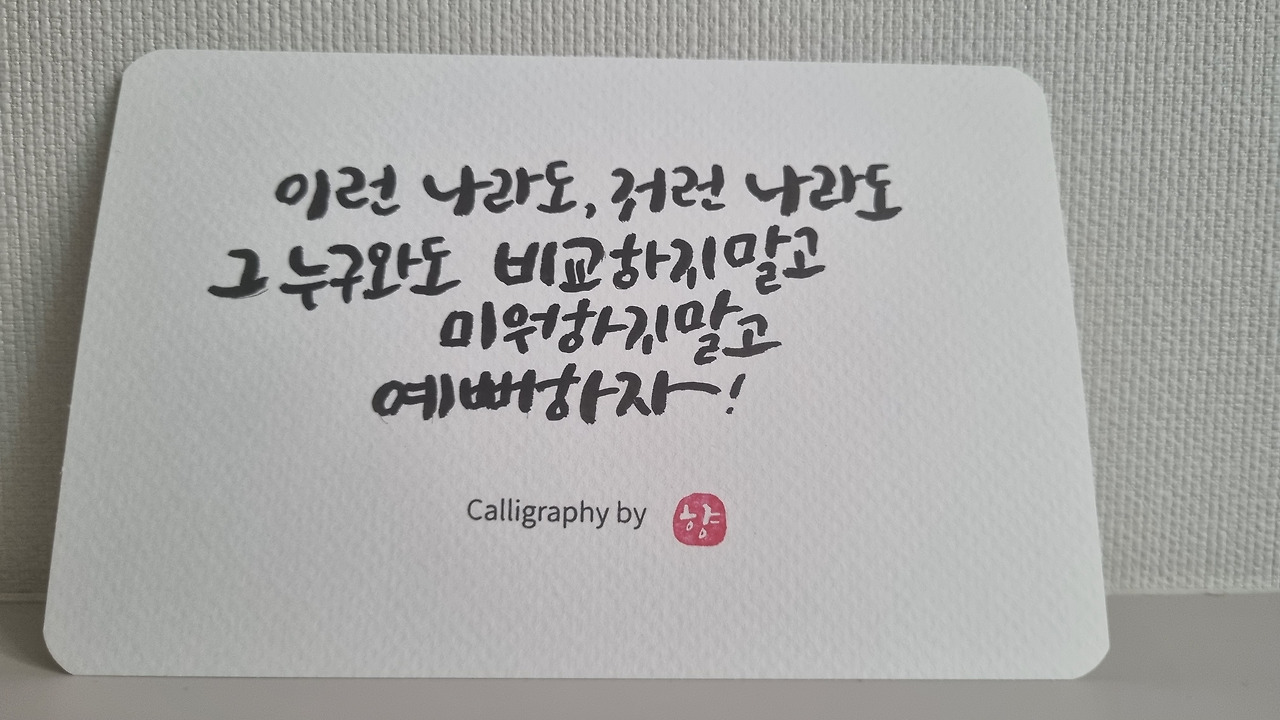 이런 나라도, 저런 나라도
그 누구와도 비교하지말고
미워하지말고
예뻐하자~!
Calligraphy by 향